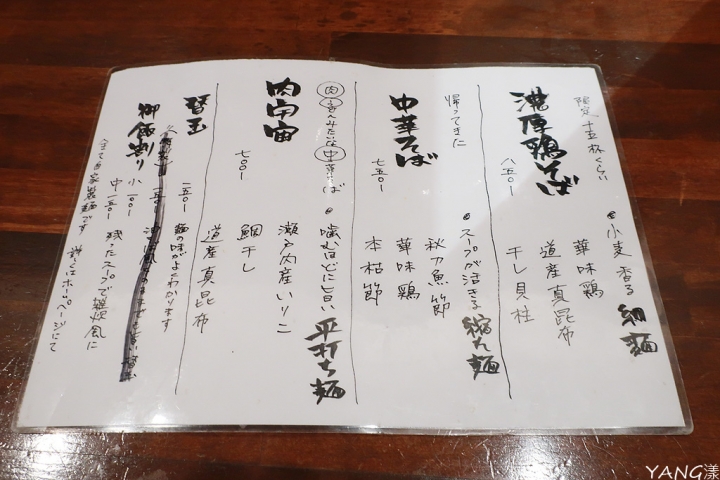 限定十五杯くらい
濃厚鶏そば
八五〇-
小麦香る 細麺
華味鶏
道産真昆布
干し貝柱
帰ってきた
中華そば
七五〇-
スープが活きる 縮れ麺
秋刀魚節
華味鶏
本枯節
中華そば
肉宇宙
七〇〇-
噛むほどに旨い 平打ち麺
瀬戸内産いりこ
鯛干し
道産真昆布
替玉
一五〇-
麺の味がよくわかります
御飯割り
小 一〇〇-
中 一五〇- 残ったスープで雑炊風に
全て自家製麺です 詳しくはホームページにて
YANG漾